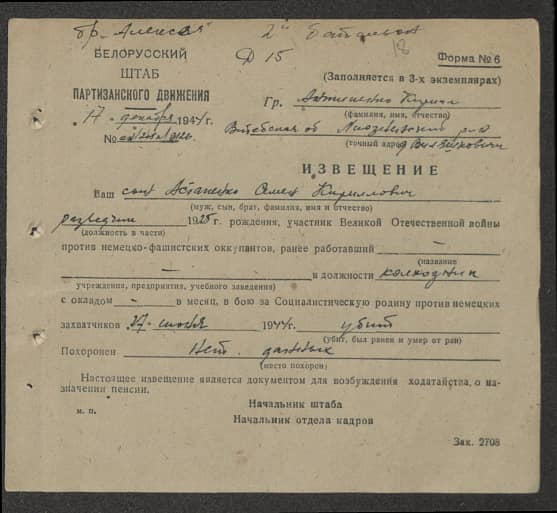 бр. Алексея 2й батальон
Д 15 18
БЕЛОРУССКИЙ
ШТАБ
ПАРТИЗАНСКОГО ДВИЖЕНИЯ
17 декабря 1944 г.
№
Форма № 6
(Заполняется в 3-х экземплярах)
Гр.
(фамилия, имя, отчество)
Витебская об
(точный адрес)
ИЗВЕЩЕНИЕ
Ваш сын Кириллович
(муж, сын, брат, фамилия, имя и отчество)
разведчик 1925 г. рождения, участник Великой Отечественной войны
(должность в части)
против немецко-фашистских оккупантов, ранее работавший —
(название
— в должности колхозник
учреждения, предприятия, учебного заведения)
с окладом — в месяц, в бою за Социалистическую родину против немецких
захватчиков 1944 г. убит
(убит, был ранен и умер от ран)
Похоронен Нет данных
(место похорон)
Настоящее извещение является документом для возбуждения ходатайства, о на-
значении пенсии.
Начальник штаба
м. п.
Начальник отдела кадров
Зак. 2708